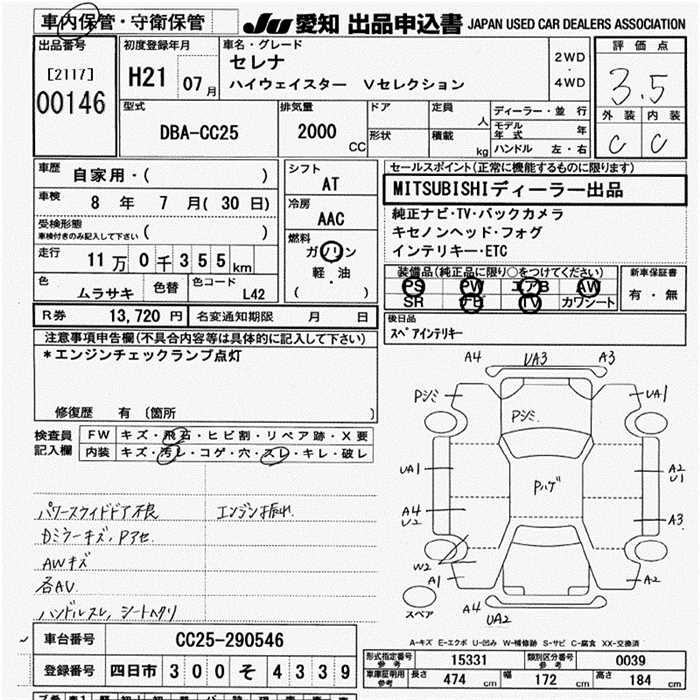 車内保管・守衛保管
JU 愛知 出品申込書 JAPAN USED CAR DEALERS ASSOCIATION
出品番号
[2117]
00146
初度登録年月
H21 07月
車名・グレード
セレナ
ハイウェイスター Vセレクション
2WD
・
4WD
評価点
3.5
外装 内装
C C
型式
DBA-CC25
排気量
2000 CC
ドア
形状
定員 人
積載 kg
ディーラー・並行
モデル年式 年
ハンドル 左・右
車歴
自家用・( )
車検
8 年 7 月( 30 日)
受検形態
車検付きのみ記入して下さい ( )
走行
11万0千355km
色
ムラサキ
色替
色コード
L42
シフト
AT
冷房
AAC
燃料
ガソリン
軽・油
( )
セールスポイント(正常に機能するものに限ります)
MITSUBISHIディーラー出品
純正ナビ・TV・バックカメラ
キセノンヘッド・フォグ
インテリキー・ETC
装備品(純正品に限り○をつけてください)
PS PW エアB AW
SR ナビ TV カワシート
新車保証書
有・無
R券 13,720 円 名変通知期限 月 日
後日品
スペアインテリキー
注意事項申告欄(不具合内容等は具体的に記入して下さい)
*エンジンチェックランプ点灯
修復歴 有 〔箇所 〕
検査員
記入欄
FW キズ・飛石・ヒビ割・リペア跡・X要
内装 キズ・汚レ・コゲ・穴・スレ・キレ・破レ
パワースライドドア不良 エンジン振れ
Dミラーキズ、Pアセ
AWキズ
各AV
ハンドルスレ、シートヘタリ
A4 UA3 A3
Pシミ UA1
Pシミ
UA1 Pハゲ A2
U1
A4
U2 A3
W2
A1 A2
スペア
A4 UA2
A-キズ E-エクボ U-凹み W-補修跡 S-サビ C-腐食 XX-交換済
車台番号 CC25-290546
登録番号 四日市 300 そ 4339
形式指定番号
参考 15331
類別区分番号
参考 0039
車庫証明用
参考 長さ 474 cm 幅 172 cm 高さ 184 cm